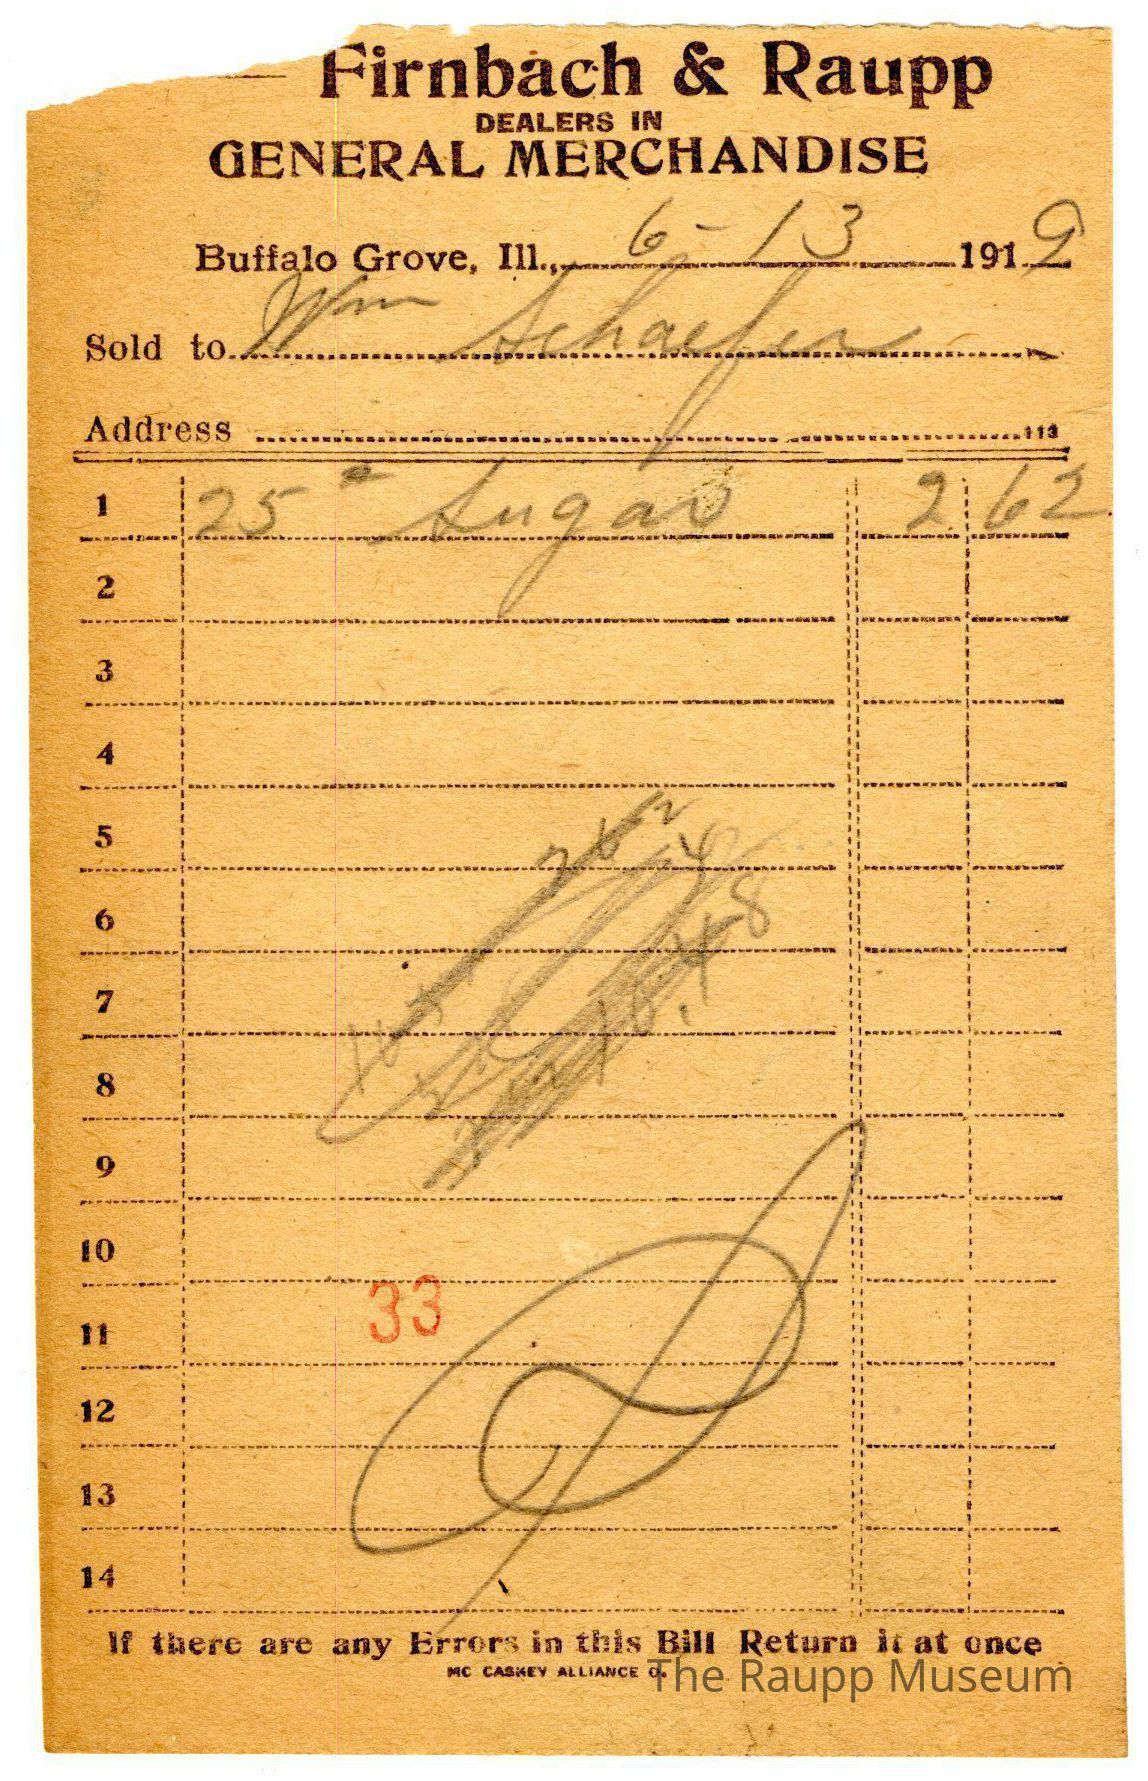 Firnbach & Raupp
DEALERS IN
GENERAL MERCHANDISE
Buffalo Grove, Ill., 6-13 1919
Sold to Wm Schaefer
Address 113
1 25 # Sugar 2 62
2
3
4
5
6
7
8
9
10
33
11
12
13
14
If there are any Errors in this Bill Return it at once
MC CASKEY ALLIANCE O.
The Raupp Museum